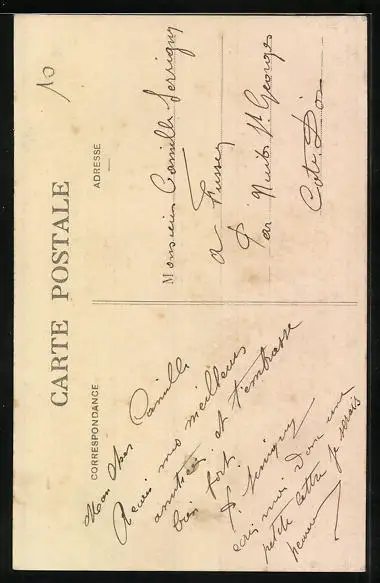 10
CARTE POSTALE
CORRESPONDANCE
ADRESSE
Mon cher Camille
Recois mes meilleurs
amitiés et t'embrasse
bien fort
P. Serrigny
ecris moi donc une
petite lettre je serais
heureux
Monsieur Camille Serrigny
a Fussey
Par Nuits St Georges
Cote D'or